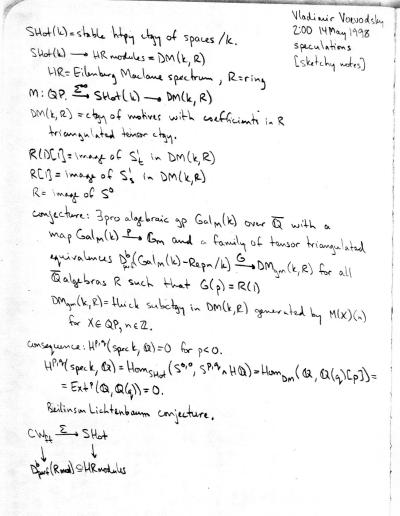 Vladimir Voevodsky
2:00 14 May 1998
speculations
[sketchy notes]
SHot(k) = stable htpy ctgy of spaces/k.
SHot(k) → HR modules = DM(k,R)
HR = Eilenburg Maclane spectrum, R = ring
M: QP. Σ^∞→ SHot(k) → DM(k,R)
DM(k,R) = ctgy of motives with coefficients in R
triangulated tensor ctgy.
R(1)[1] = image of S^1_t in DM(k,R)
R[1] = image of S^1_s in DM(k,R)
R = image of S^0
conjecture: ∃ pro algebraic gp Gal_m(k) over Q̅ with a
map Gal_m(k) →^P G_m and a family of tensor triangulated
equivalences (Gal_m(k)-Repn/k) →^G DM_gm(k,R) for all
Q̅ algebras R such that G(p) = R(1)
DM_gm(k,R) = thick subctgy in DM(k,R) generated by M(X)(n)
for X ∈ QP, n ∈ Z.
consequence: H^{p,q}(spec k, Q) = 0 for p<0.
H^{p,q}(spec k, Q) = Hom_{SHot}(S^{0,0}, S^{p,q} ∧ HQ) = Hom_{DM}(Q, Q(q)[p]) =
= Ext^p(Q, Q(q)) = 0.
Beilinson Lichtenbaum conjecture.
CW_ft →^Σ SHot
↓ ↓
D^b_perf(R mod) ⊆ HR modules